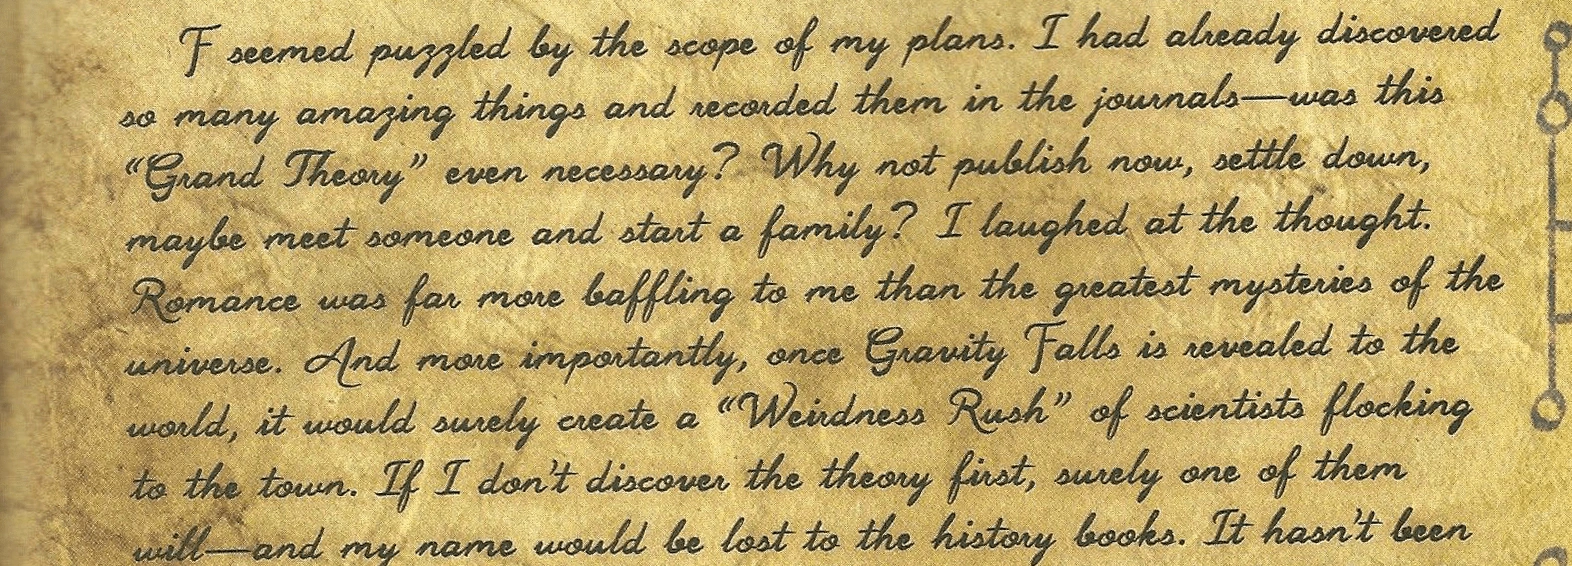 F seemed puzzled by the scope of my plans. I had already discovered
so many amazing things and recorded them in the journals—was this
“Grand Theory” even necessary? Why not publish now, settle down,
maybe meet someone and start a family? I laughed at the thought.
Romance was far more baffling to me than the greatest mysteries of the
universe. And more importantly, once Gravity Falls is revealed to the
world, it would surely create a “Weirdness Rush” of scientists flocking
to the town. If I don’t discover the theory first, surely one of them
will—and my name would be lost to the history books. It hasn’t been